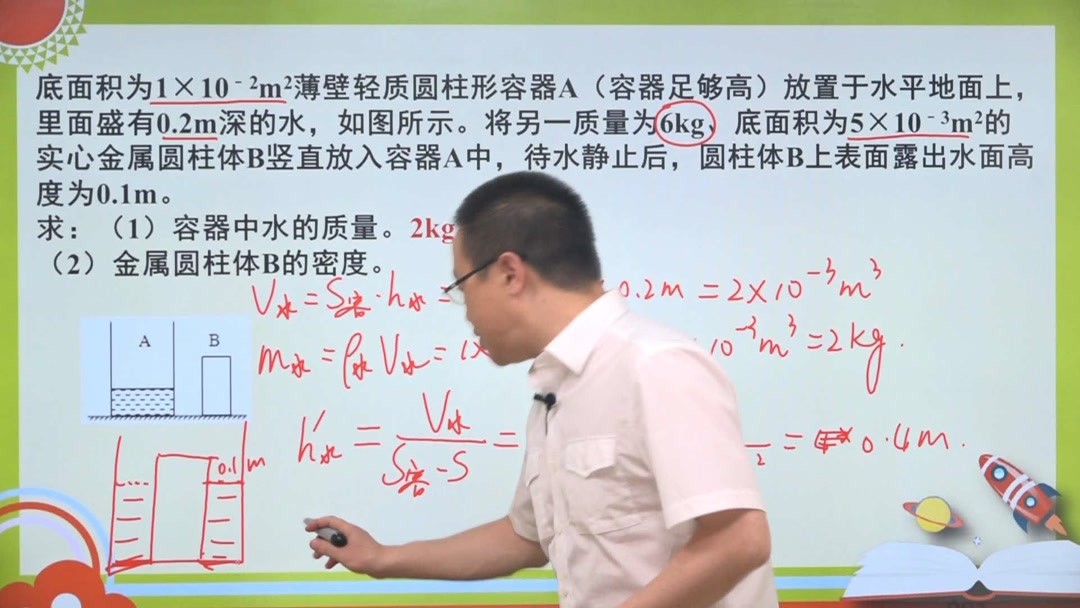 底面积为1×10⁻²m²薄壁轻质圆柱形容器A（容器足够高）放置于水平地面上，
里面盛有0.2m深的水，如图所示。将另一质量为6kg、底面积为5×10⁻³m²的
实心金属圆柱体B竖直放入容器A中，待水静止后，圆柱体B上表面露出水面高
度为0.1m。
求：（1）容器中水的质量。2kg
（2）金属圆柱体B的密度。
V水=S容·h水= 0.2m=2×10⁻³m³
m水=ρ水V水=1× 10⁻³m³=2kg.
A B
h'水=V水/(S容-S)= =0.4m.
0.1m